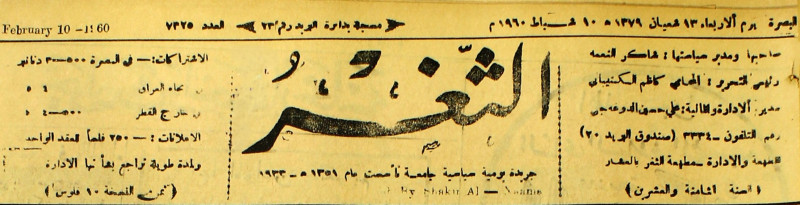 البصرة يوم الاربعاء ١٣ شعبان ١٣٧٩ ه ١٠ شباط ١٩٦٠ م
مسجلة بدائرة البريد رقم ٢٣
العدد ٧٣٢٥
February 10 - 1960
صاحبها ومدير سياستها : شاكر النعمه
رئيس التحرير : المحامي كاظم الكنيباني
مدير الادارة والمالية : علي حسين الدوعجي
رقم التلفون - ٣٣٣٤ (صندوق البريد ٢٠)
المطبعة والادارة - مطبعة الثغر بالعشار
(السنة الثامنة والعشرين)
الثغر
جريدة يومية سياسية جامعة تأسست عام ١٣٥١ ه - ١٩٣٣
By Shakir Al - Neame
الاشتراكات : - في البصرة ٥٠٠-٣ دنانير
في انحاء العراق ٥ ٤
في خارج القطر ٥٠٠-٤ ٥
الاعلانات : - ٢٥٠ فلساً للعقد الواحد
ولمدة طويلة تراجع بشأنها الادارة
(ثمن النسخة ١٠ فلوس)